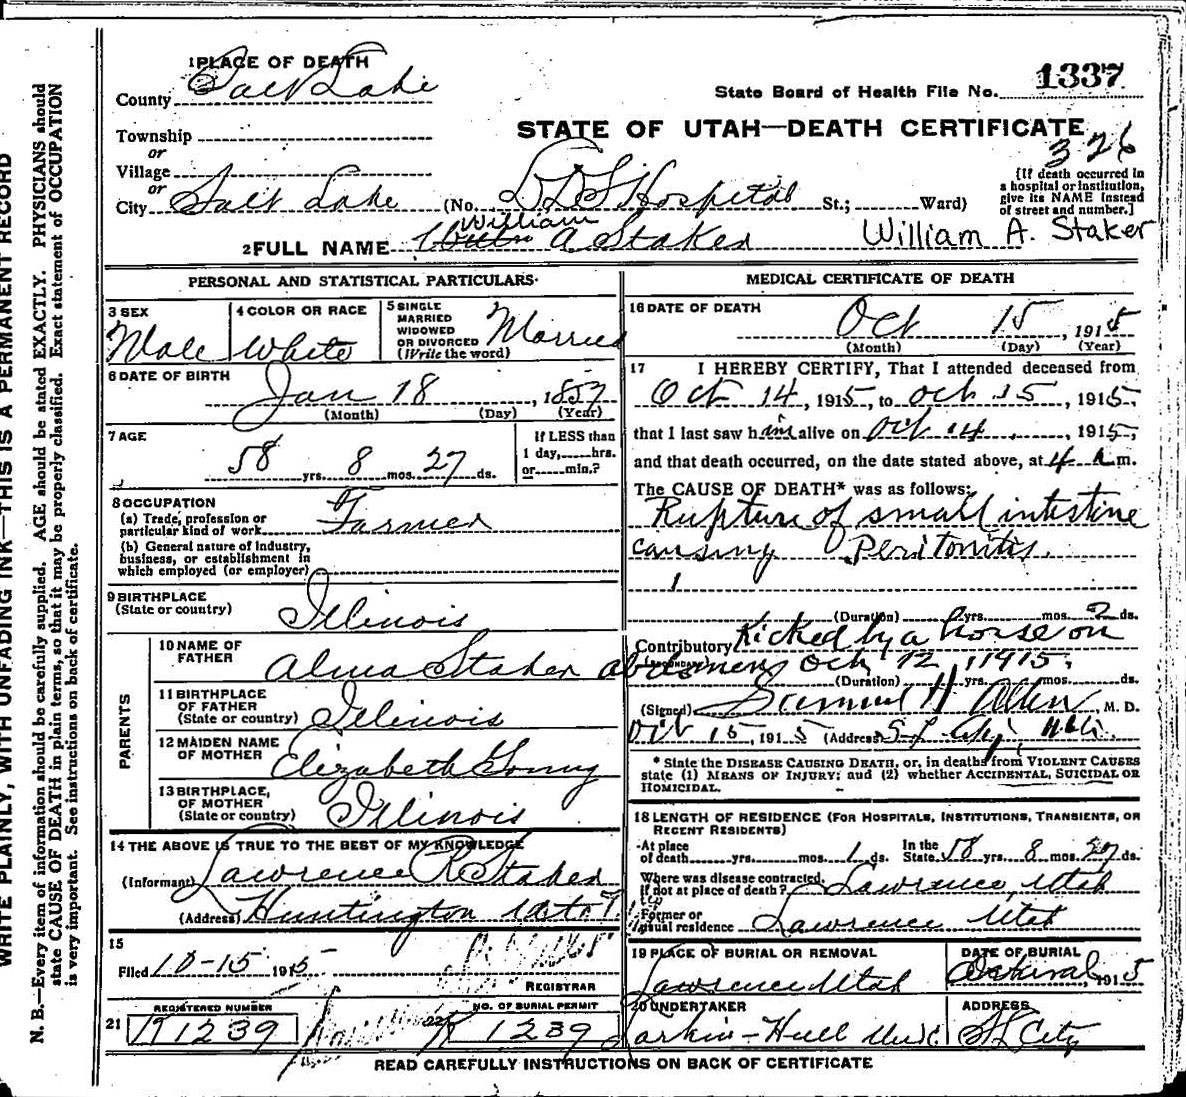 WRITE PLAINLY, WITH UNFADING INK—THIS IS A PERMANENT RECORD
N. B.—Every item of information should be carefully supplied. AGE should be stated EXACTLY. PHYSICIANS should
state CAUSE OF DEATH in plain terms, so that it may be properly classified. Exact statement of OCCUPATION
is very important. See instructions on back of certificate.
1 PLACE OF DEATH
County Salt Lake
State Board of Health File No. 1337
Township
or
Village
or
City Salt Lake (No. LDS Hospital St.; Ward)
STATE OF UTAH—DEATH CERTIFICATE
326
[If death occurred in
a hospital or institution,
give its NAME instead
of street and number.]
2 FULL NAME William A Staker William A. Staker
PERSONAL AND STATISTICAL PARTICULARS
3 SEX
Male
4 COLOR OR RACE
White
5 SINGLE
MARRIED
WIDOWED
OR DIVORCED
(Write the word)
Married
6 DATE OF BIRTH
Jan 18, 1857
(Month) (Day) (Year)
7 AGE
58 yrs. 8 mos. 27 ds.
If LESS than
1 day, hrs.
or min.?
8 OCCUPATION
(a) Trade, profession or
particular kind of work Farmer
(b) General nature of industry,
business, or establishment in
which employed (or employer)
9 BIRTHPLACE
(State or country) Illinois
PARENTS
10 NAME OF
FATHER Alma Staker
11 BIRTHPLACE
OF FATHER
(State or country) Illinois
12 MAIDEN NAME
OF MOTHER Elizabeth
13 BIRTHPLACE,
OF MOTHER
(State or country) Illinois
14 THE ABOVE IS TRUE TO THE BEST OF MY KNOWLEDGE
(Informant) Lawrence R Staker
(Address) Huntington Utah
15
Filed 10-15 1915
REGISTRAR
REGISTERED NUMBER
21 1239
NO. OF BURIAL PERMIT
22 1239
MEDICAL CERTIFICATE OF DEATH
16 DATE OF DEATH
Oct 15, 1915
(Month) (Day) (Year)
17 I HEREBY CERTIFY, That I attended deceased from
Oct 14, 1915, to Oct 15, 1915,
that I last saw him alive on Oct 14, 1915,
and that death occurred, on the date stated above, at 4 a m.
The CAUSE OF DEATH* was as follows:
Rupture of small intestine
causing Peritonitis.
(Duration) yrs. mos. 2 ds.
Contributory Kicked by a horse on
(SECONDARY) abdomen Oct 12, 1915.
(Duration) yrs. mos. ds.
(Signed) Samuel H Allen, M. D.
Oct 15, 1915 (Address) S L City, Utah.
* State the DISEASE CAUSING DEATH, or, in deaths from VIOLENT CAUSES
state (1) MEANS OF INJURY; and (2) whether ACCIDENTAL, SUICIDAL OR
HOMICIDAL.
18 LENGTH OF RESIDENCE (FOR HOSPITALS, INSTITUTIONS, TRANSIENTS, OR
RECENT RESIDENTS)
At place
of death yrs. mos. 1 ds.
In the
State 58 yrs. 8 mos. 27 ds.
Where was disease contracted,
if not at place of death? Lawrence, Utah
Former or
usual residence Lawrence Utah
19 PLACE OF BURIAL OR REMOVAL
Lawrence Utah
DATE OF BURIAL
1915
20 UNDERTAKER
Larkin-Hull
ADDRESS
S L City
READ CAREFULLY INSTRUCTIONS ON BACK OF CERTIFICATE